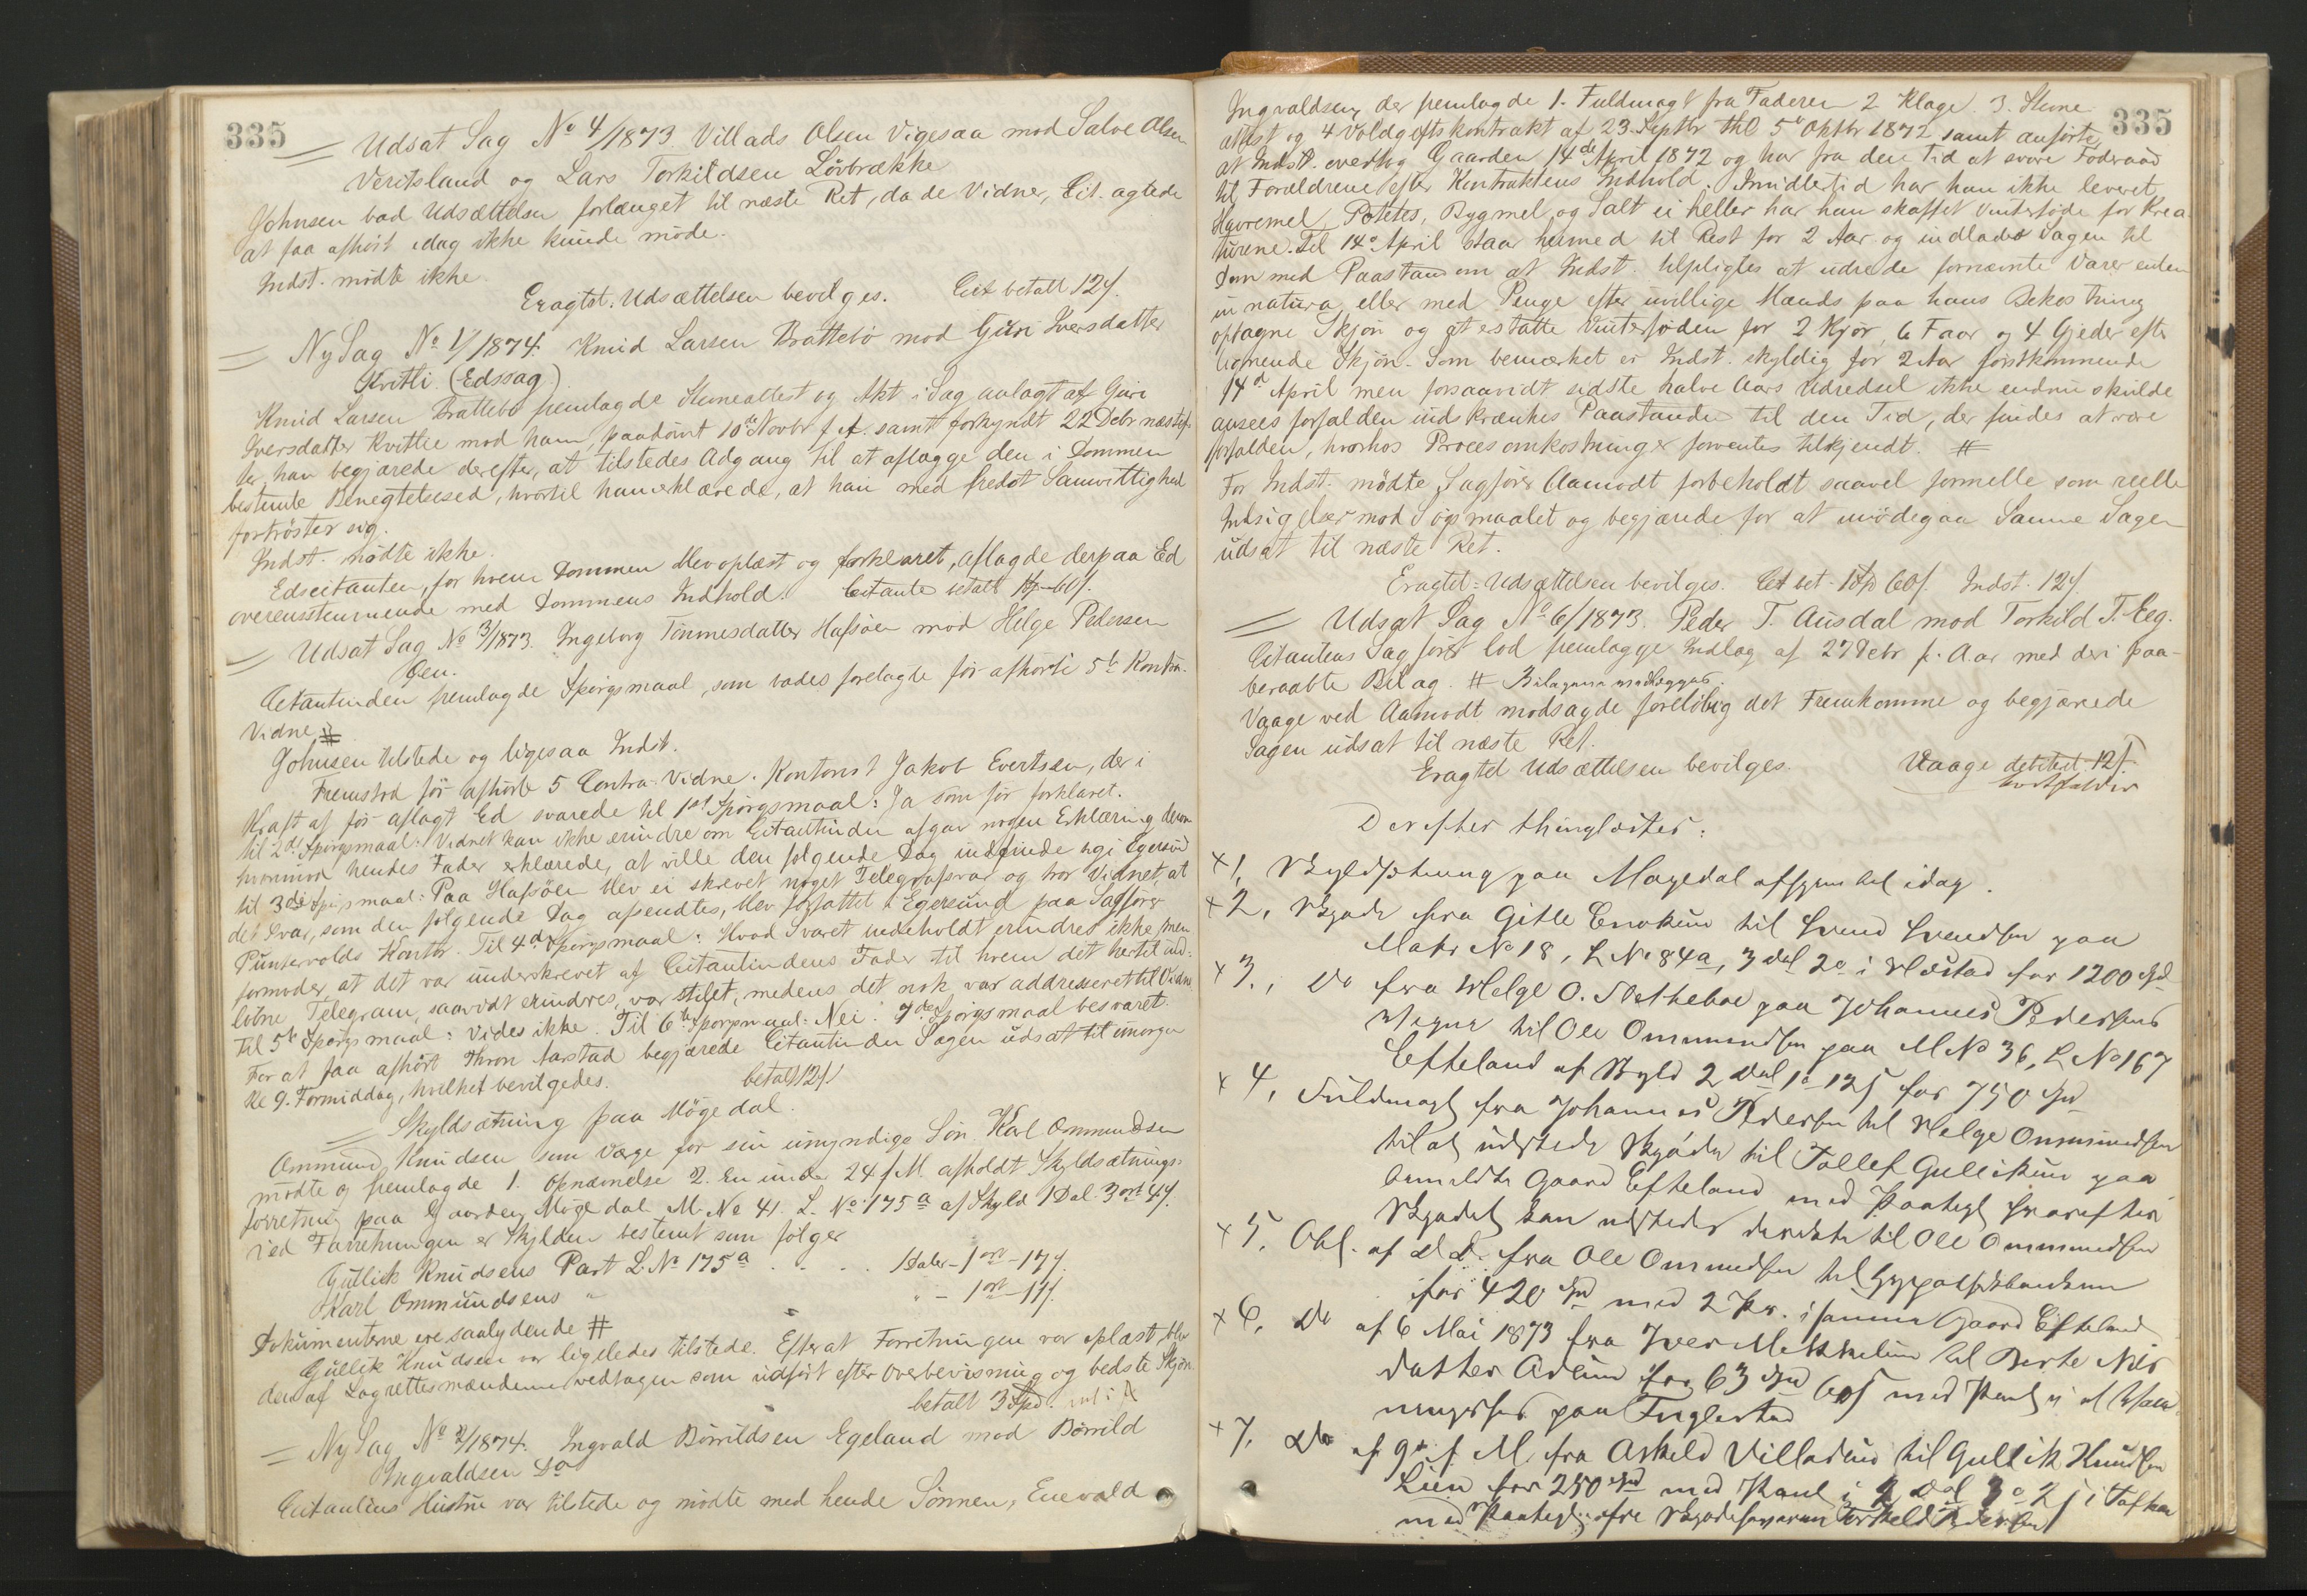 335
Udsat Sag No 4/1873. Villads Olsen Vigesaa mod Salve Olsen
Veritsland og Lars Torkildsen Lövbrække
Johnsen bad Udsættelsen forlænget til næste Ret, da de Vidner, Cit. agtede
at faa afhört idag ikke kunde möde.
Indst. mödte ikke.
Eragtet: Udsættelsen bevilges. Cit betalt 12 s.
Ny Sag No 1/1874. Knud Larsen Brattebö mod Guri Iversdatter
Kvitli. (Edssag)
Knud Larsen Brattebö fremlagde Stevneattest og Akt i Sag anlagt af Guri
Iversdatter Kvitlie mod ham, paadömt 10de Novbr f. A. samt forkyndt 22 Debr næstef-
ter, han begjærede derefter, at tilstedes Adgang til at aflægge den i Dommen
bestemte Benegtelsesed, hvortil han erklærede, at han med fredet Samvittighed
fortröster sig.
Indst. mödte ikke.
Edscitanten, for hvem Dommen blev oplæst og forklaret, aflagde derpaa Ed
overensstemmende med Dommens Indhold. Citanten betalt 1 60 s.
Udsat Sag No 3/1873. Ingeborg Tönnesdatter Hafsöen mod Helge Pedersen
Oen.
Citantinden fremlagde Spörgsmaal, som bades forelagte för afhörte 5te Kontra-
Vidne #
Johnsen tilstede og ligesaa Indst.
Fremstod för afhörte 5 Contra-Vidne. Kontorist Jakob Evertsen, der i
Kraft af för aflagt Ed svarede til 1ste Spörgsmaal: Ja som för forklaret.
til 2det Spörgsmaal: Vidnet kan ikke erindre om Citantinden afgav nogen Erklæring derom
hvorimod hendes Fader erklærede, at ville den fölgende Dag indfinde sig i Egersund
til 3die Spörgsmaal: Paa Hafsöen blev ei skrevet noget Telegrafsvar og tror Vidnet, at
det Svar, som den fölgende Dag afsendtes, blev forfattet i Egersund paa Sagförer
Puntervolds Kontor. Til 4de Spörgsmaal: Hvad Svaret indeholdt erindres ikke, men
formoder, at det var underskrevet af Citantindens Fader til hvem det hertil ind-
löbne Telegram, saavidt erindres, var stilet, medens det nok var addresseret til Vidnet
Til 5te Spörgsmaal: Vides ikke. Til 6te Spörgsmaal: Nei. 7de Spörgsmaal besvaret.
For at faa afhört Thron Aarstad begjærede Citantinden Sagen udsat til imorgen
Kl 9. Formiddag, hvilket bevilgedes. betalt 12 s.
Skyldsætning paa Mögedal.
Ommund Knudsen som Værge for sin umyndige Sön Karl Ommundsen
mödte og fremlagde 1. Opnævnelse 2. En under 24 f. M. afholdt Skyldsætnings-
forretning paa Gaarden Mögedal M. No 41. L. No 175 a af Skyld 1 Dal. 3 ort 4 s.
Ved Forretningen er Skylden bestemt som fölger
Gullik Knudsens Part L. No 175 a . . . . 1 Daler - 1 ort - 17 s.
Karl Ommundsens " " - 1 ort - 11 s.
Dokumenterne ere saalydende #
Gullik Knudsen var ligeledes tilstede. Efterat Forretningen var oplæst, blev
den af Lagrettesmændene vedtagen som udfört efter Overbevisning og bedste Skjön.
betalt 3 Spd.
Ny Sag No 2/1874. Ingvald Börrildsen Egeland mod Börrild
Ingvaldsen Do
Citantens Hustru var tilstede og mödte med hende Sönnen, Enevald
335
Ingvaldsen, der fremlagde 1. Fuldmagt fra Faderen 2 Klage. 3. Stevne-
attest og 4 Voldgiftskontrakt af 23. Septbr thl 5te Oktbr 1872 samt anförte,
at Indst. overtog Gaarden 14de April 1872 og har fra den Tid at svare Föderaad
til Forældrene efter Kontraktens Indhold. Imidlertid har han ikke leveret
Havremel, Potetes, Bygmel og Salt ei heller har han skaffet Vinterföde for Krea-
turene. Til 14de April staar hermed til Rest for 2 Aar og indlades Sagen til
Dom med Paastand om at Indst. tilpligtes at udrede fornævnte Varer enten
in natura eller med Penge efter uvillige Mænds paa hans Bekostning
optagne Skjön og at erstatte Vinterföden for 2 Kjör, 6 Faar og 4 Gjeder efter
lignende Skjön. Som bemærket er Indst. skyldig for 2 Aar förstkommende
14de April men forsaavidt sidste halve Aars Udredsel ikke endnu skulde
ansees forfalden indskrænkes Paastanden til den Tid, der findes at være
forfalden, hvorhos Procesomkostninger forventes tilkjendt. #
For Indst. mödte Sagförer Aamodt forbeholdt saavel formelle som reelle
Indsigelser mod Sögsmaalet og begjærede for at imödegaa Samme Sagen
udsat til næste Ret.
Eragtet: Udsættelsen bevilges. Cit bet. 1 60 s. Indst. 12 s.
Udsat Sag No 6/1873. Peder T. Ausdal mod Torkild T. Eeg.
Citantens Sagförer lod fremlægge Indlæg af 27 Debr f. Aar med deri paa-
beraabte Bilag. # Bilagene medlægges.
Vaage ved Aamodt modsagde foreløbig det Fremkomne og begjærede
Sagen udsat til næste Ret.
Eragtet Udsættelsen bevilges. Vaage debiteret 12 s.
bortfalder
Derefter thinglæstes:
x 1. Skyldsætning paa Møgedal afhjemlet idag.
x 2. Skjøde fra Gitle Enoksen til Svend Svendsen paa
Matr No 18, L No 84a, 3 Dal 2 o i Hæstad for 1200 Spd
x 3. Do fra Helge O. Slethebøe paa Johannes Pedersens
Vegne til Ole Ommundsen paa M No 36, L No 167
Efteland af Skyld 2 Dal 1 o 12 s for 750 Spd
x 4. Fuldmagt fra Johannes Pedersen til Helge Ommundsen
til at udstede Skjøde til Tollef Gulliksen paa
bemeldte Gaard Efteland med Paategn hvorefter
Skjødet kan udstedes directe til Ole Ommundsen
x 5. Obl. af D.D. fra Ole Ommundsen til Hypothekbanken
for 420 Spd med 2 Pr. i samme Gaard Efteland
x 6. Do af 6 Mai 1873 fra Iver Mikkelsen til Berte Nils
datter Aasen for 63 Spd 60 s med Pant i
paa Fuglestad
x 7. Do af 9de f. M. fra Askeld Villadsen til Gullik Knudsen
Lien for 250 Spd med Pant i 2 Dal 3 o 2 s i
med Paategn fra Torkeld Pedersen